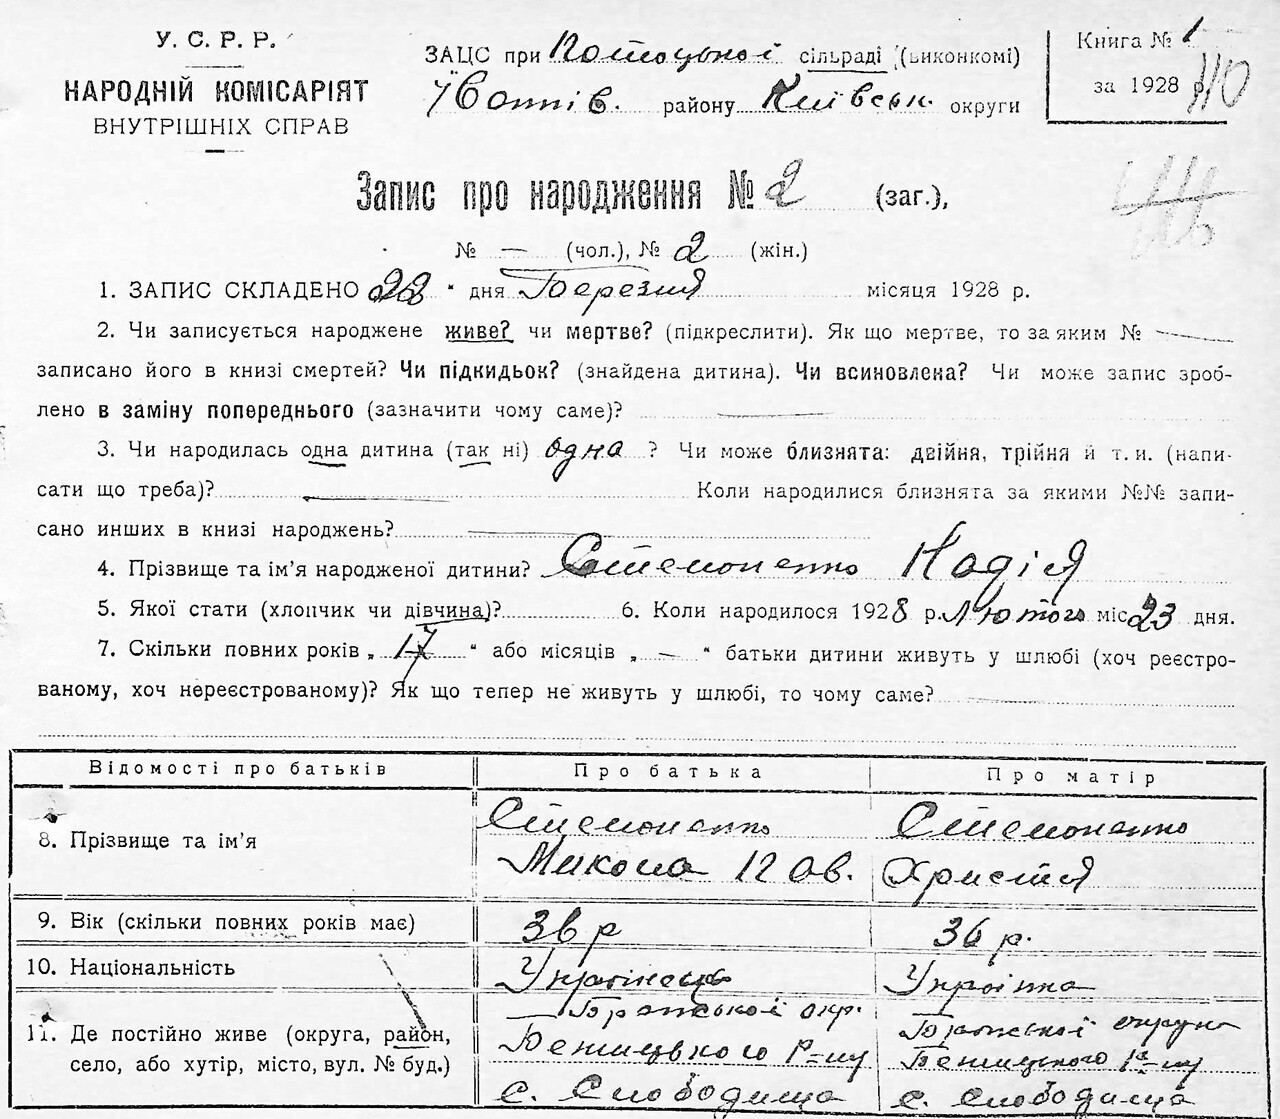 У. С. Р. Р.
НАРОДНІЙ КОМІСАРІЯТ
ВНУТРІШНІХ СПРАВ
ЗАЦС при Потоцькой сільраді (виконкомі)
району Київськ. округи
Книга № 1
за 1928 р. 110
Запис про народження № 2 (заг.),
№ — (чол.), № 2 (жін.)
1. ЗАПИС СКЛАДЕНО 22 " дня Березня місяця 1928 р.
2. Чи записується народжене живе? чи мертве? (підкреслити). Як що мертве, то за яким № —
записано його в книзі смертей? Чи підкидьок? (знайдена дитина). Чи всиновлена? Чи може запис зроб-
лено в заміну попереднього (зазначити чому саме)? —
3. Чи народилась одна дитина (так ні) одна ? Чи може близнята: двійня, трійня й т. и. (напи-
сати що треба)? — Коли народилися близнята за якими №№ запи-
сано инших в книзі народжень? —
4. Прізвище та ім'я народженої дитини? Надія
5. Якої стати (хлопчик чи дівчина)? 6. Коли народилося 1928 р. Лютого міс 23 дня.
7. Скільки повних років „ 17 " або місяців „ — " батьки дитини живуть у шлюбі (хоч реєстро-
ваному, хоч нереєстрованому)? Як що тепер не живуть у шлюбі, то чому саме? —
Відомості про батьків Про батька Про матір
8. Прізвище та ім'я
Микола Пав. Христя
9. Вік (скільки повних років має) 36 р 36 р.
10. Національність Українець Українка
11. Де постійно живе (округа, район,
село, або хутір, місто, вул. № буд.)
округи
р-ну
с. Слободища с. Слободища